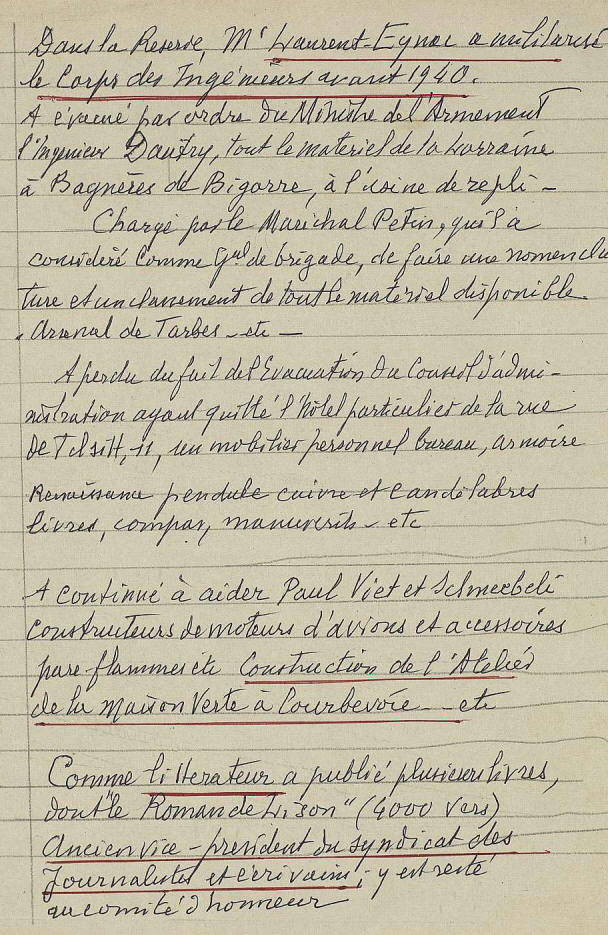 Dans la Reserve, Mr Laurent-Eynac a militarisé
le Corps des Ingénieurs avant 1940.
A évacué par ordre du Ministre de l'Armement
l'Ingenieur Dautry, tout le materiel de la Lorraine
à Bagnères de Bigorre, à l'usine de repli -
Chargé par le Maréchal Petin, qui l'a
considéré comme Gal de brigade, de faire une nomencla
ture et un classement de tout le materiel disponible.
Arsenal de Tarbes - etc -
A perdu du fait de l'Evacuation du Conseil d'admi-
nistration ayant quitté l'hôtel particulier de la rue
de Tilsitt, 11, un mobilier personnel bureau, armoire
Renaissance pendule cuivre et candélabres
livres, compas, manuscrits - etc
A continué à aider Paul Viet et Schneebeli
constructeurs de moteurs d'avions et accessoires
pare-flammes etc Construction de l'Atelier
de la Maison Verte à Courbevoie - - etc
Comme litterateur a publié plusieurs livres,
dont "le Roman de Lison" (4000 vers)
Ancien vice-president du syndicat des
Journalistes et écrivains; y est resté
au comité d'honneur